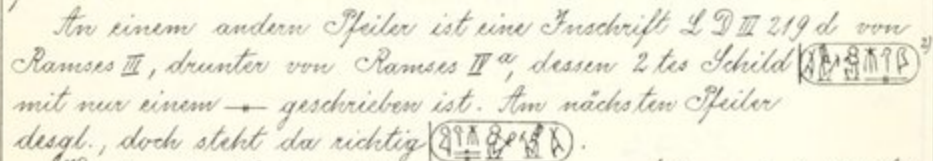 An einem andern Pfeiler ist eine Inschrift L D III 219 d von
Ramses III, drunter von Ramses IV a, dessen 2 tes Schild 2)
mit nur einem geschrieben ist. Am nächsten Pfeiler
desgl., doch steht da richtig .